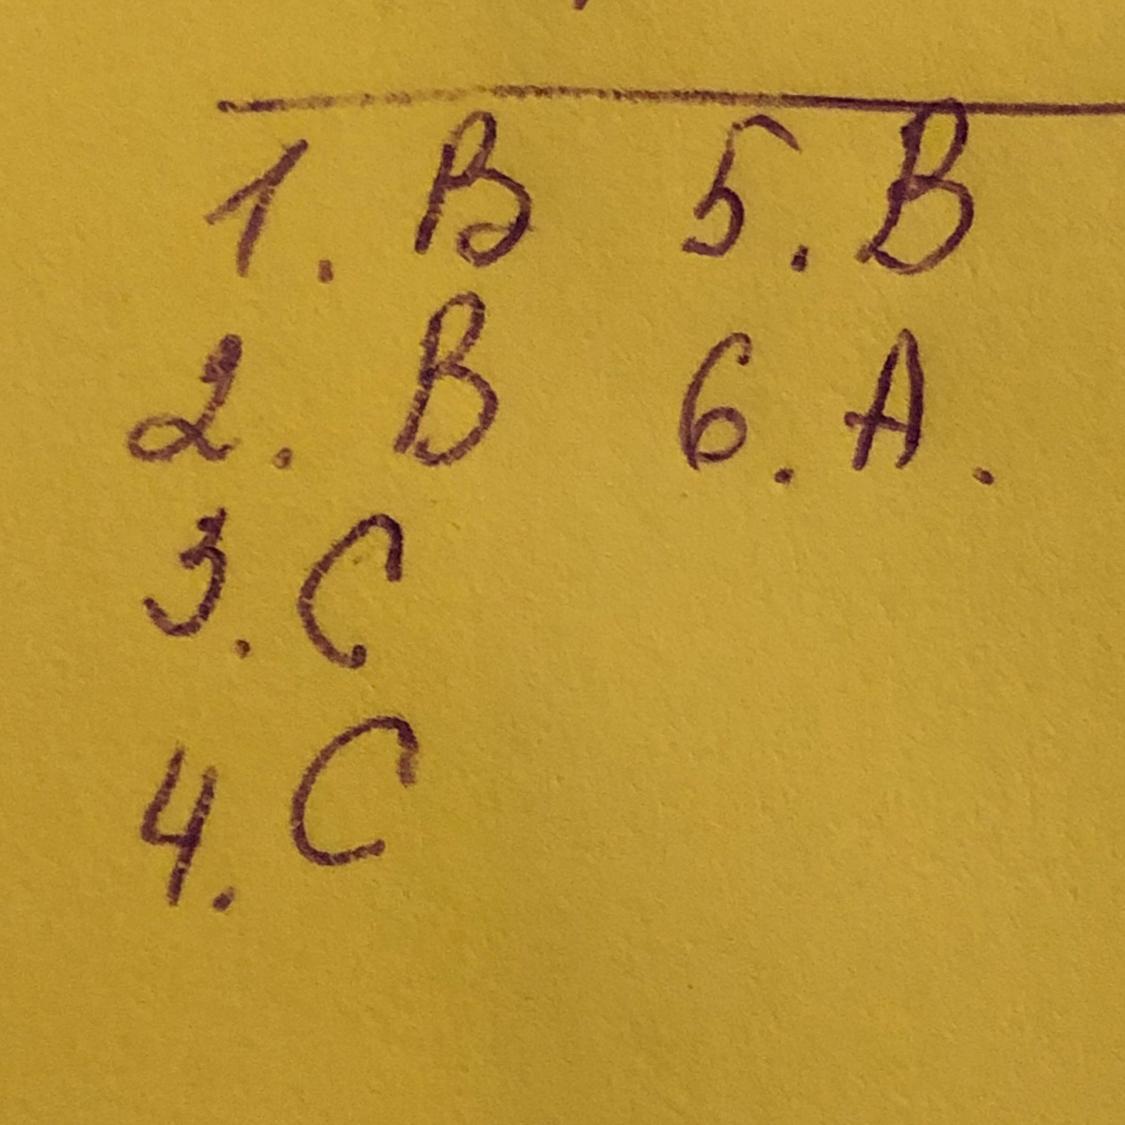 1. B 5. B
2. B 6. A.
3. C
4. C